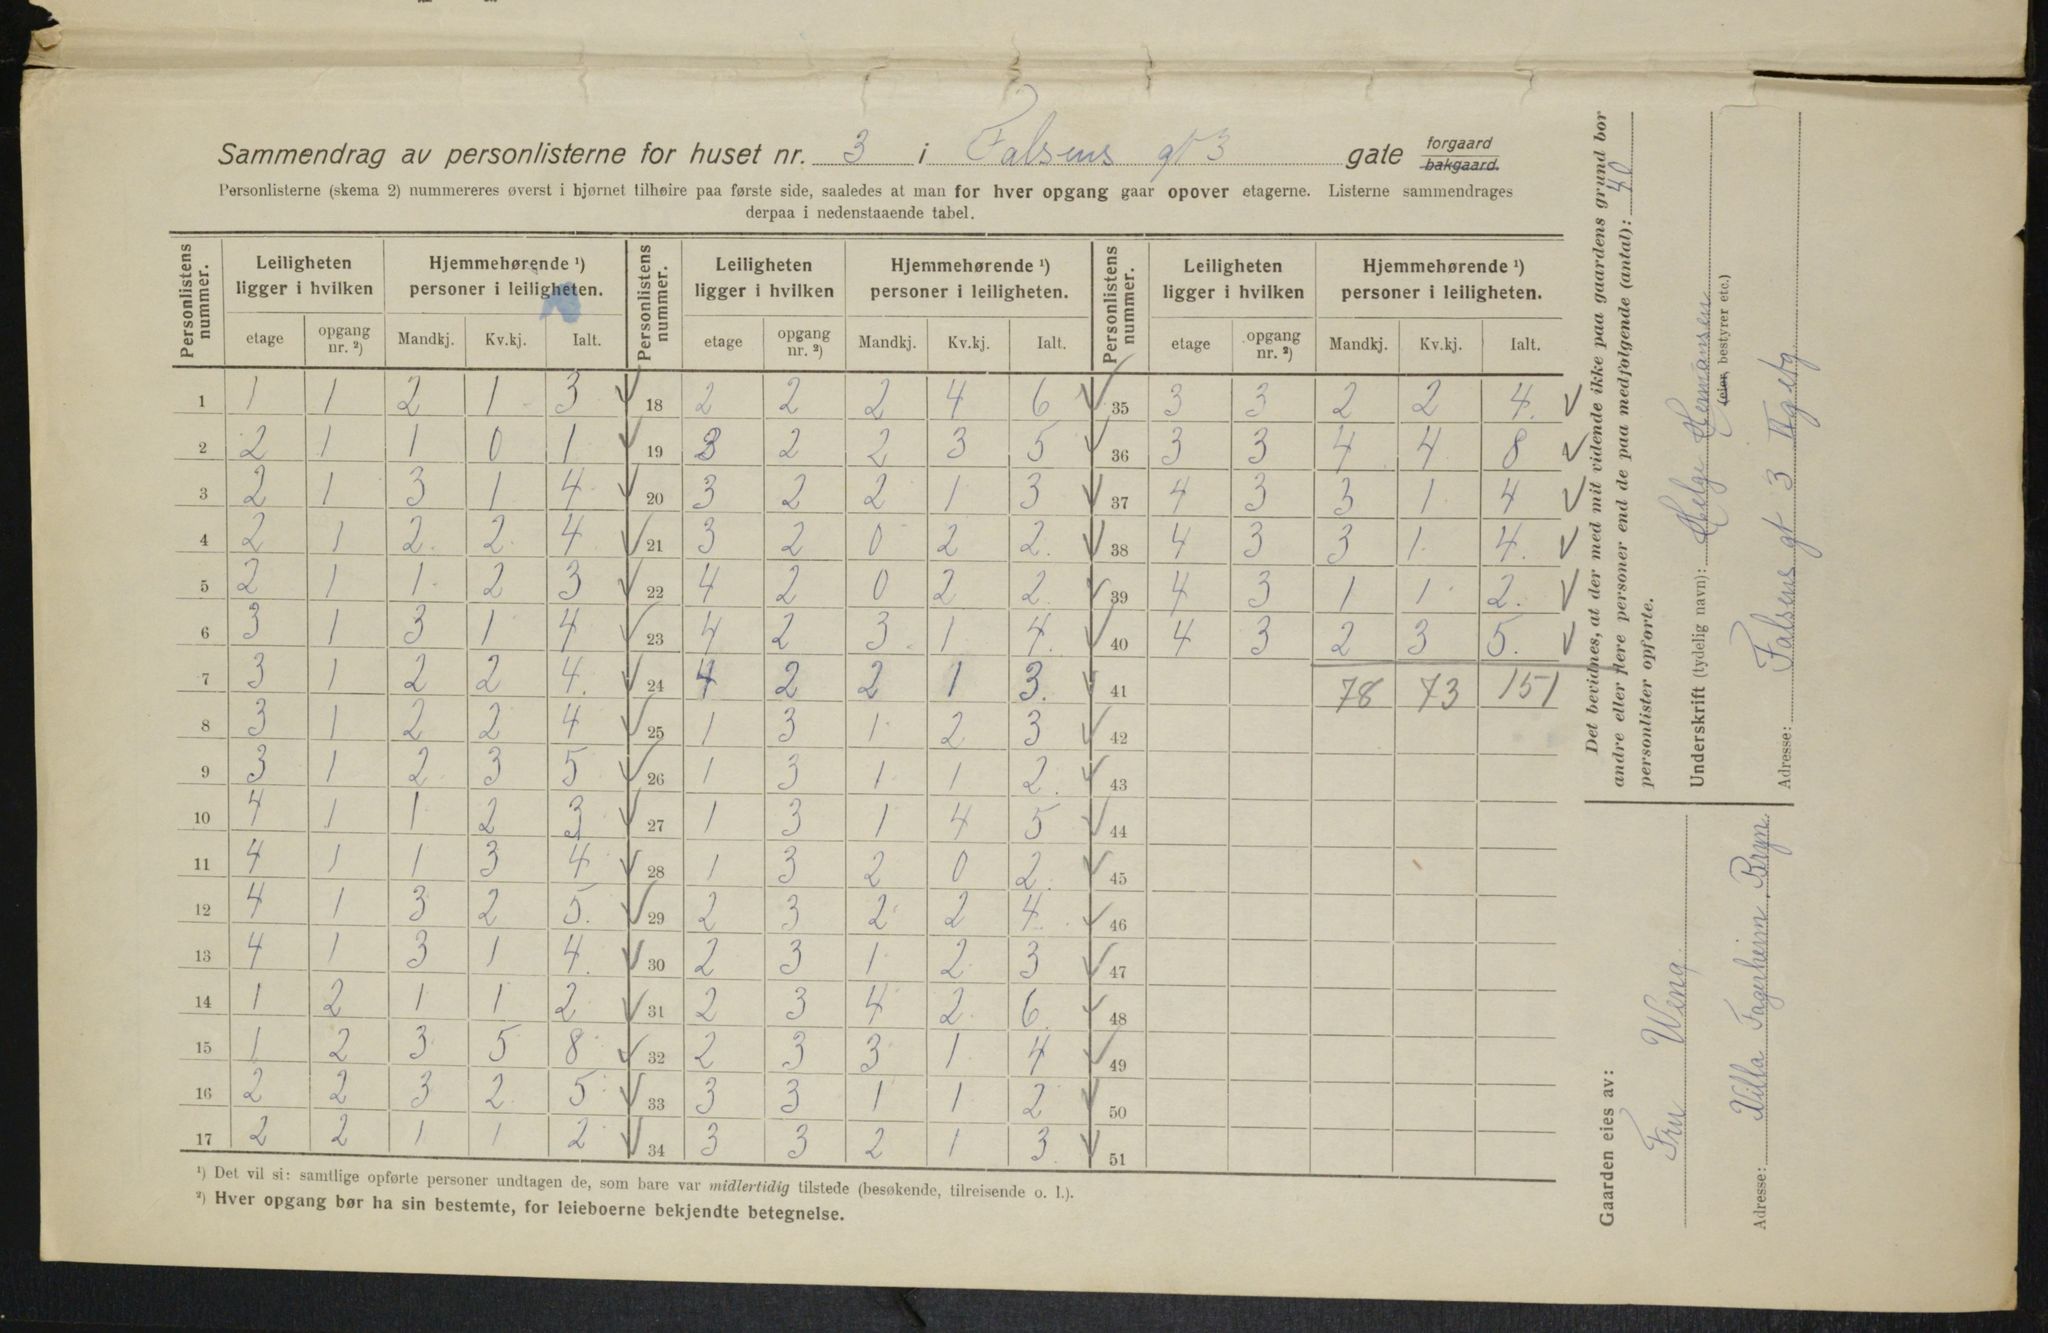 Sammendrag av personlisterne for huset nr. 3 i Falsens gt 3 gate forgaard bakgaard.
Personlisterne (skema 2) nummereres øverst i hjørnet tilhøire paa første side, saaledes at man for hver opgang gaar opover etagerne. Listerne sammendrages
derpaa i nedenstaaende tabel.
Personlistens nummer. Leiligheten ligger i hvilken Hjemmehørende ¹) personer i leiligheten. Personlistens nummer. Leiligheten ligger i hvilken Hjemmehørende ¹) personer i leiligheten. Personlistens nummer. Leiligheten ligger i hvilken Hjemmehørende ¹) personer i leiligheten.
etage opgang nr. ²) Mandkj. Kv.kj. Ialt. etage opgang nr. ²) Mandkj. Kv.kj. Ialt. etage opgang nr. ²) Mandkj. Kv.kj. Ialt.
1 1 1 2 1 3 ✓ 18 2 2 2 4 6 ✓ 35 3 3 2 2 4. ✓
2 2 1 1 0 1 ✓ 19 3 2 2 3 5 ✓ 36 3 3 4 4 8 ✓
3 2 1 3 1 4 ✓ 20 3 2 2 1 3 ✓ 37 4 3 3 1 4 ✓
4 2 1 2 2 4 ✓ 21 3 2 0 2 2. ✓ 38 4 3 3 1. 4. ✓
5 2 1 1 2 3 ✓ 22 4 2 0 2 2. ✓ 39 4 3 1 1 2. ✓
6 3 1 3 1 4 ✓ 23 4 2 3. 1 4. ✓ 40 4 3 2 3 5. ✓
7 3 1 2 2 4. ✓ 24 4 2 2 1 3. ✓ 41 78 73 151
8 3 1 2 2 4 ✓ 25 1 3 1 2 3 ✓ 42
9 3 1 2 3 5 ✓ 26 1 3 1 1 2. ✓ 43
10 4 1 1 2 3 ✓ 27 1 3 1 4 5 ✓ 44
11 4 1 1 3 4 ✓ 28 1 3 2 0 2. ✓ 45
12 4 1 3 2 5. ✓ 29 2 3 2 2 4. ✓ 46
13 4 1 3 1 4. ✓ 30 2 3 1 2 3 ✓ 47
14 1 2 1 1 2 ✓ 31 2 3 4 2 6. ✓ 48
15 1 2 3 5 8 ✓ 32 2 3 3 1 4 ✓ 49
16 2 2 3 2 5 ✓ 33 3 3 1 1 2 ✓ 50
17 2 2 1 1 2 ✓ 34 3 3 2 1 3. ✓ 51
¹) Det vil si: samtlige opførte personer undtagen de, som bare var midlertidig tilstede (besøkende, tilreisende o. l.).
²) Hver opgang bør ha sin bestemte, for leieboerne bekjendte betegnelse.
Det bevidnes, at der med mit vidende ikke paa gaardens grund bor
andre eller flere personer end de paa medfølgende (antal): 40
personlister opførte.
Underskrift (tydelig navn): Helge Hermansen
(eier, bestyrer etc.)
Adresse: Falsens gt 3 II
Gaarden eies av:
Fru Weng
Adresse: Villa Fagerheim Bryn.